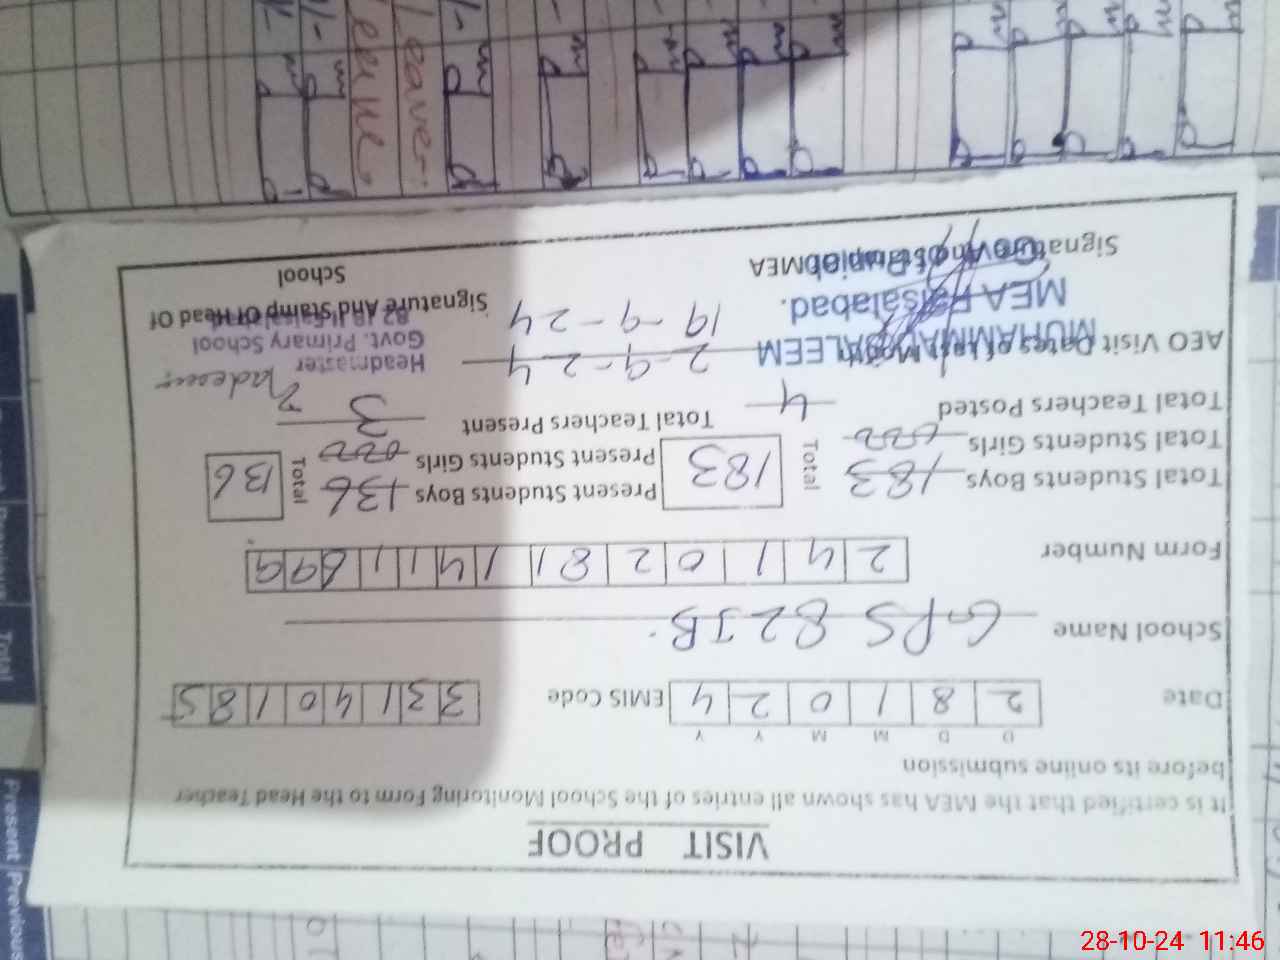 VISIT PROOF
It is certified that the MEA has shown all entries of the School Monitoring Form to the Head Teacher
before its online submission
D D M M Y Y
Date 2 8 1 0 2 4 EMIS Code 3 3 1 4 0 1 8 5
School Name GPS 82 JB
Form Number 2 4 1 0 2 8 1 1 4 1 1 6 9 9
Total Students Boys 183 Total 183 Present Students Boys 136 Total 136
Total Students Girls 000 Present Students Girls 000
Total Teachers Posted 4 Total Teachers Present 3
AEO Visit Dates of Last Month 2-9-24
19-9-24
MUHAMMAD SALEEM
MEA Faisalabad.
Govt. of Punjab
Signature And Stamp of MEA
Headmaster
Govt. Primary School
Signature And Stamp Of Head Of
School
Leave
Leave
Total
Previous
Present Previous
28-10-24 11:46